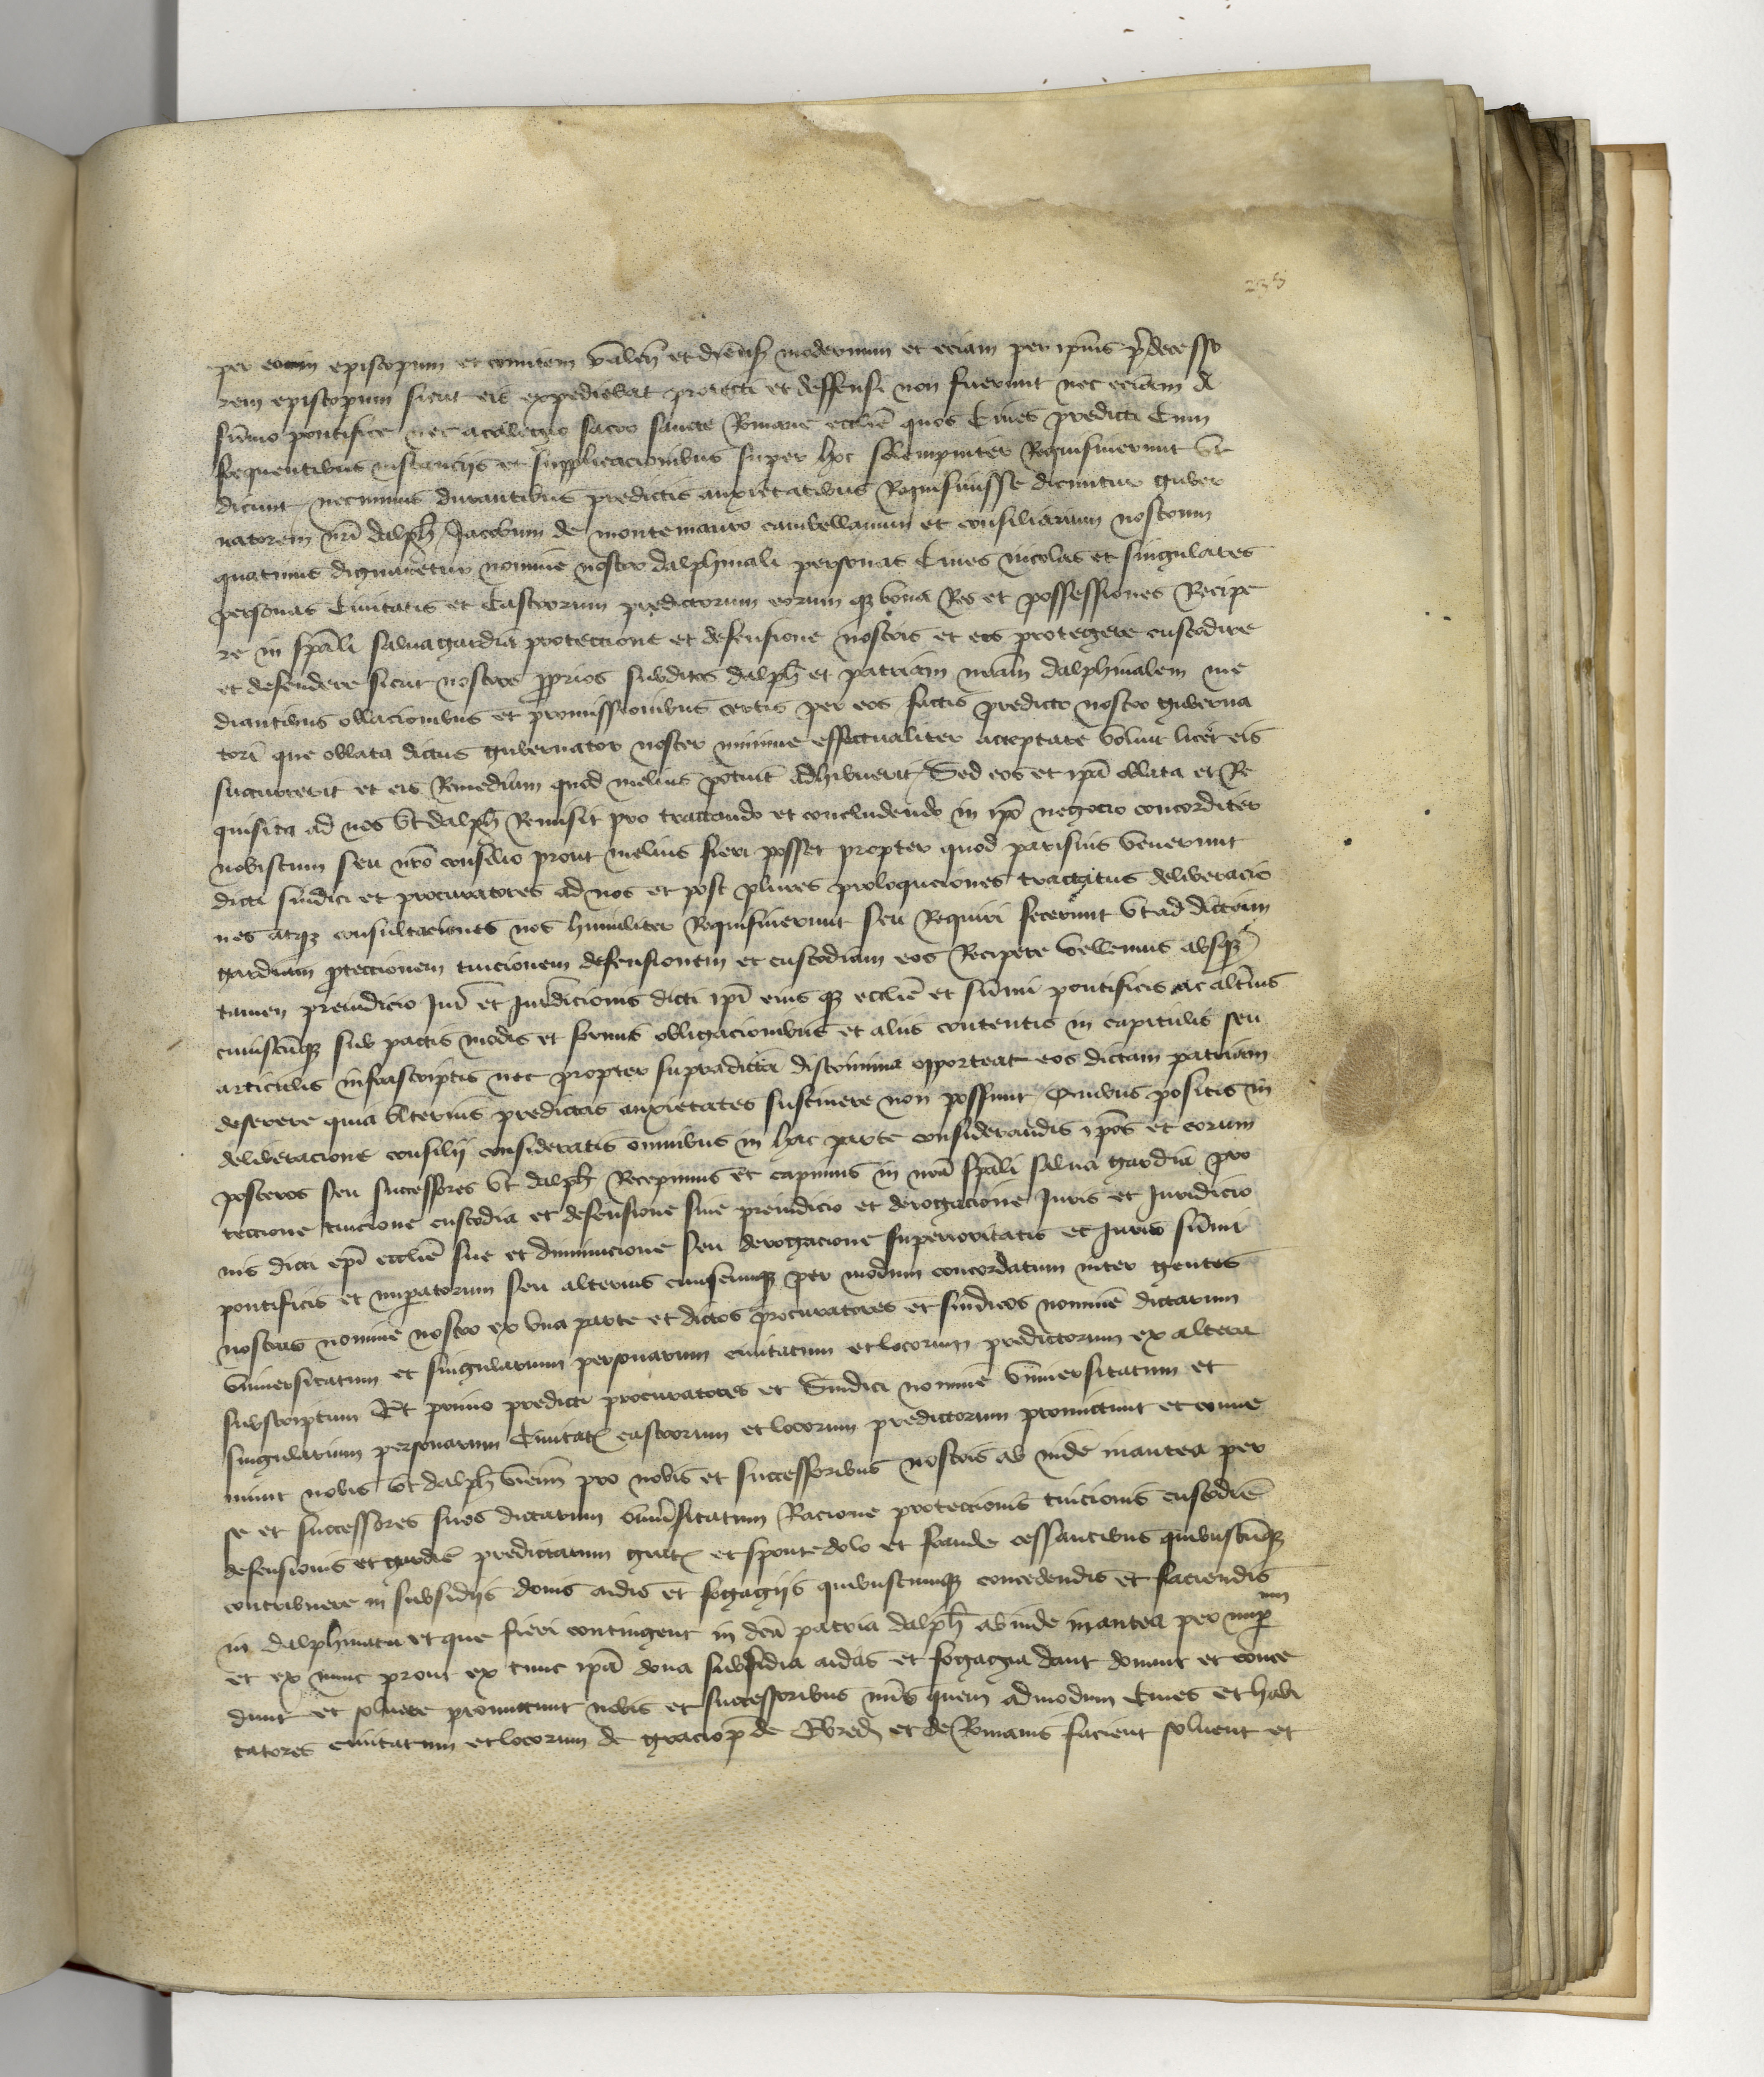 235
per eorum episcopum et comitem valen̄ et dien̄s modernum et eciam per ip̄ius p̄decesso
rem episcopum sicut eis expediebat protecti et deffensi non fuerunt nec eciam d
sūmo pontifice nec a collegio sacro sancte Romane eccliē quos Ciues predicti Cum
frequentibus instancijs et supplicacionibus super hoc solempniter Requisiuerunt Vt
dicunt necminus durantibus predictis anxietatibus Requisiuisse dicuntur guber
natorem nr̄i dalph̄ Jacobum de montemauro cambellanum et consiliarium nostrum
quatinus dignaretur nomine nostro dalphinali personas Ciues incolas et singulares
personas Ciuitatis et Castrorum predictorum eorum qȝ bona Res et possessiones Recipe
re in sp̄ali saluagardia protectione et defensione nostris et eos protegere custodire
et defendere sicut nostros p̄prios subditos dalph̄ et patriam nr̄am dalphinalem me
diantibus oblacionibus et promissionibus certis per eos factis predicto nostro guberna
tori que oblata dictus gubernator noster minime effectualiter acceptare voluit licet eis
succurrerit et eis Remedium quod melius potuit adhibuerit / Sed eos et ip̄a oblata et Re
quisita ad nos Vt dalph̄ Remisit pro tractando et concludendo in ip̄o negocio concorditer
nobiscum seu nr̄o consilio prout melius fieri posset propter quod parisius venerunt
dicti sindici et procuratores ad nos et post plures proloquciones tractatus deliberacio
nes atqȝ consultaciones nos humiliter Requisiuerunt seu Requiri fecerunt Vt ad dictam
gardiam p̄teccionem tuicionem defensionem et custodiam eos Recipere vellemus absqȝ
tamen preiudicio Juris et Jurisdicionis dicti ep̄i eius qȝ eccliē et sūmi pontificis ac alterīus
cuiuscūqȝ sub pactis modis et formis obligacionibus et aliis contentis in capitulis seu
articulis infrascriptis nec propter supradicta discrimina opporteat eos dictam patriam
deserere quia Vlterius predictas anxietates sustinere non possunt / Quibus positis in
deliberacione consilij consideratis omnibus in hac parte considerandis ip̄os et eorum
posteros seu successores Vt dalph̄ Recepimus et capimus in nr̄a sp̄ali salua gardia pro
teccione tuicione custodia et defensione sine preiudicio et derogacione Juris et Juridicio
nis dicti ep̄i eccliē sue et diminucione seu derogacione superioritatis et Juris sūmi
pontificis et imp̄atorum seu alterius cuiuscumqȝ per modum concordatum inter gentes
nostras nomine nostro ex vna parte et dictos procuratores et sindicos nomine dictarum
Vniuersitatum et singularium personarum ciuitatum et locorum predictorum ex altera
subscriptum Et primo predicti procuratores et Sindici nomine Vniuersitatum et
singularium personarum Ciuitatꝭ castrorum et locorum predictorum promictunt et conue
niunt nobis Vt dalph̄ vien̄n pro nobis et successoribus nostris ab inde inantea per
se et successores suos dictarum vniūsitatum Racione proteccionis tuicionis custodie
defensionis et gardie predictarum gratꝭ et sponte dolo et fraude cessantibus quibuscūqȝ
contribuere in subsidijs donis aidis et fogagijs quibuscumqȝ concedendis et faciendis
in dalphinatu et que fieri contingent in dc̄a patria dalph̄ ab inde in antea per imp̄
et ex nunc prout ex tunc ip̄a dona subsidia aidas et fogagia dant donant et conce
dunt et soluere promictunt nobis et successoribus nr̄is quem admodum Ciues et habi
tatores ciuitatum et locorum de graciop̄ de Ebred̄ et de Romanis facient soluent et